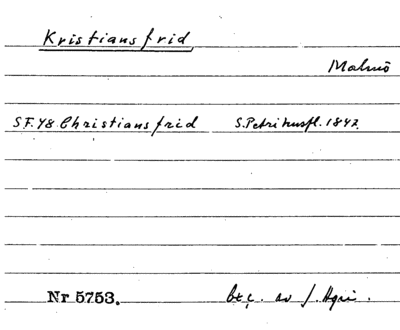 Kristiansfrid
Malmö
S.F. 48 Christiansfrid S. Petri husfl. 1847.
Nr 5753. av J.